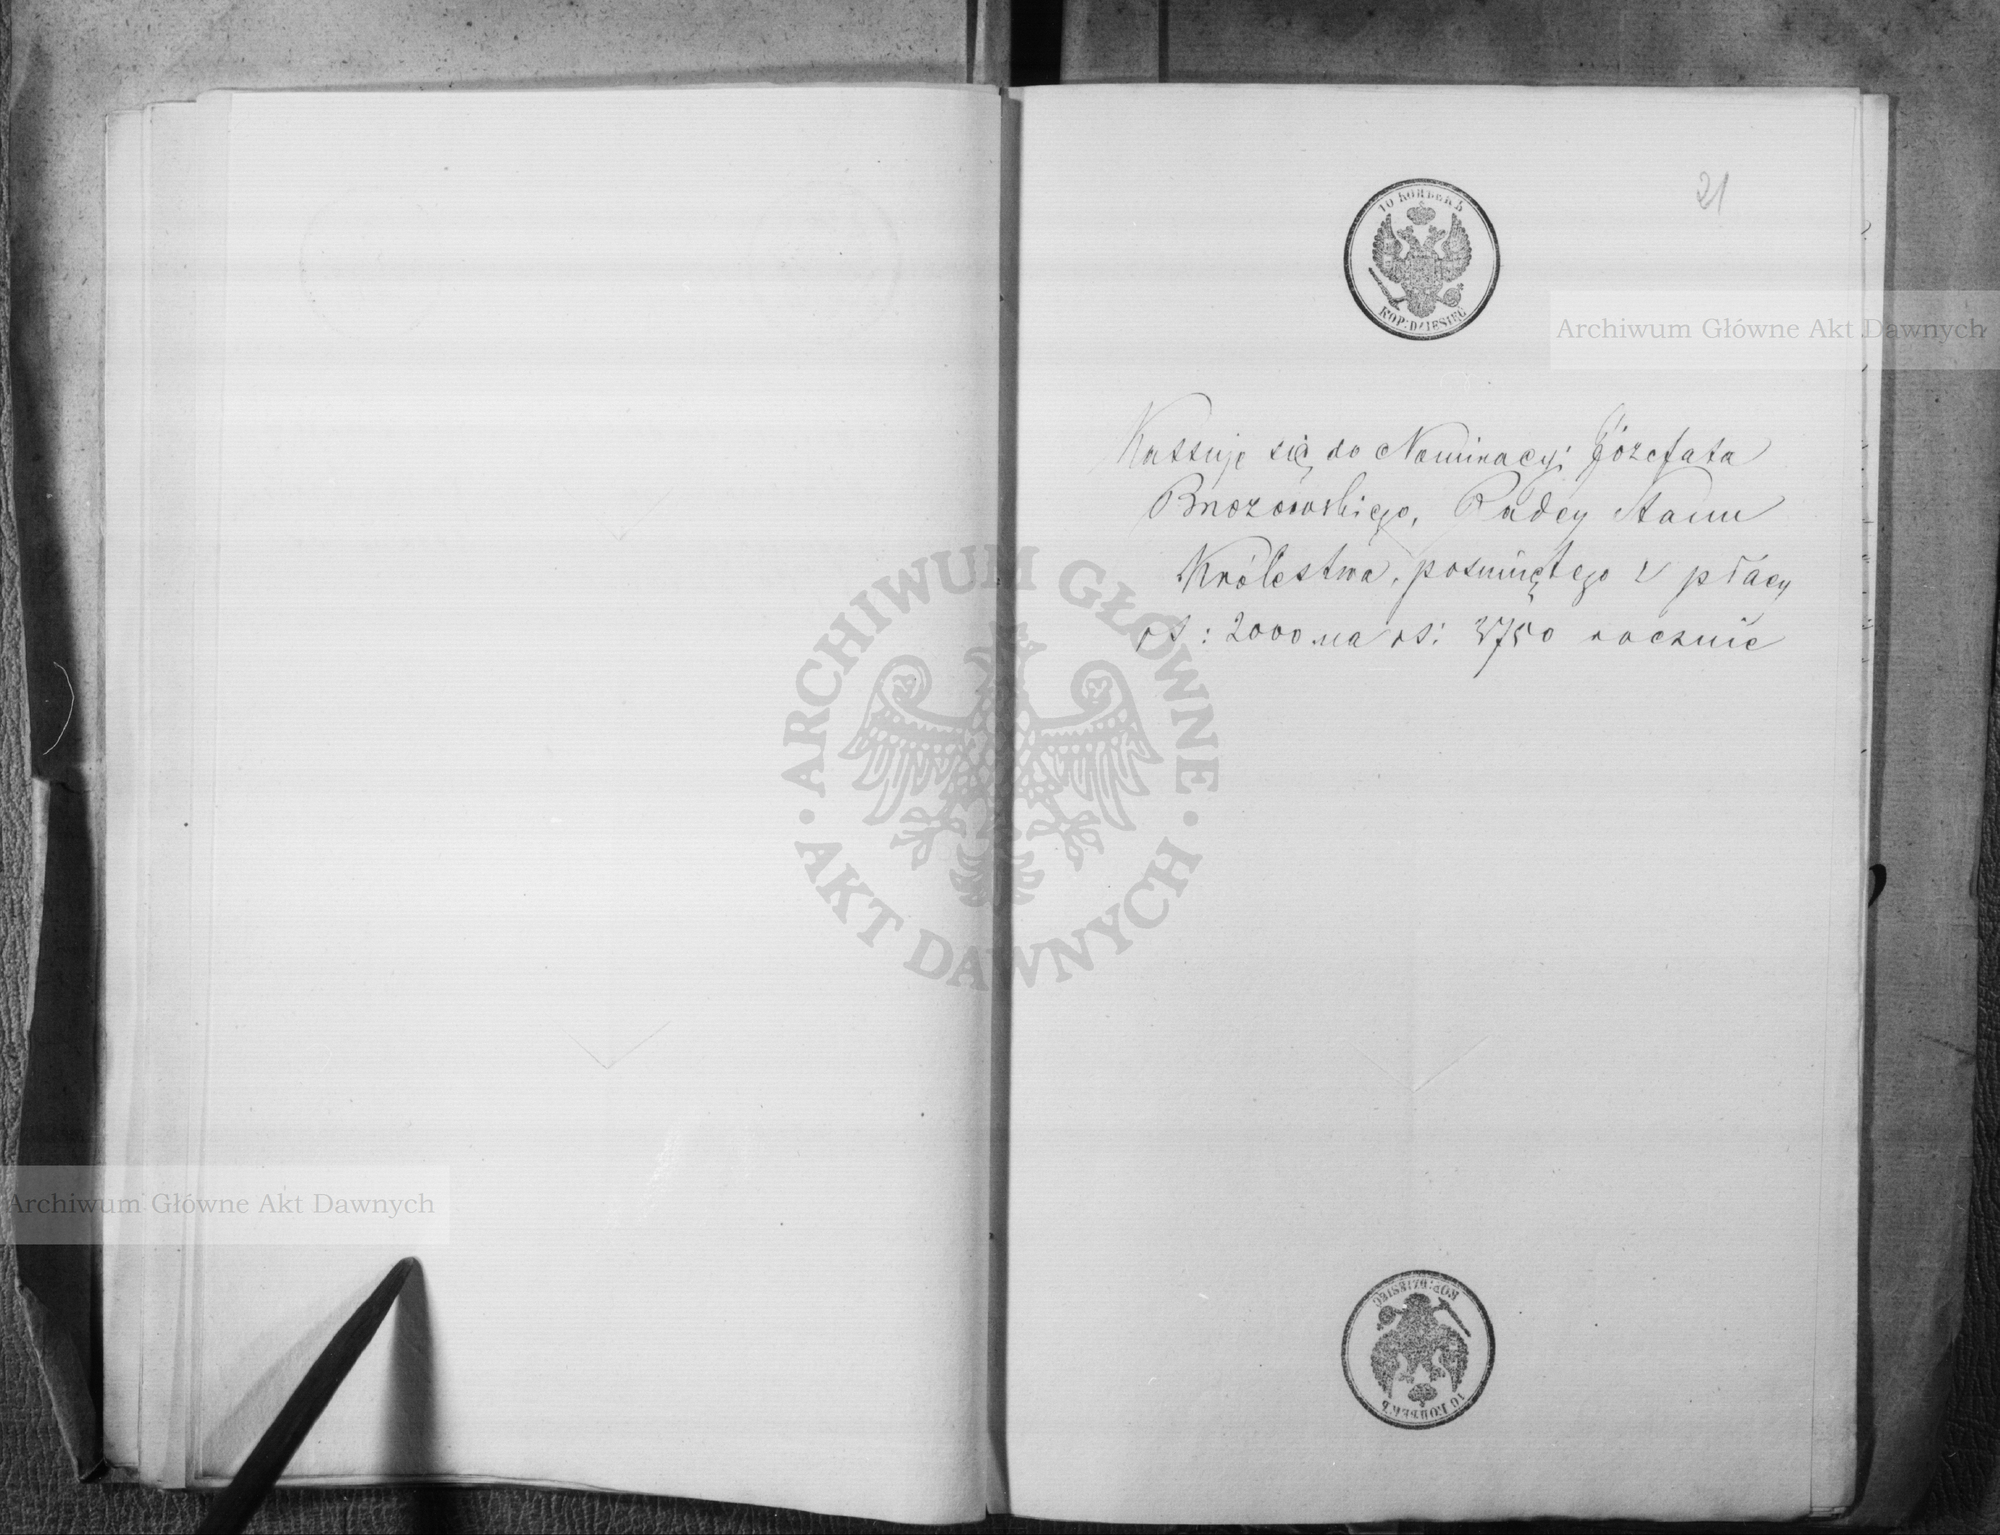 21
10 КОПѢЕКЪ
KOP: DZIESIĘĆ
Archiwum Główne Akt Dawnych
Kassuje się do Nominacyi Józefata
Brzozowskiego, Radcy Stanu
Królestwa, posuniętego z płacy
rs: 2000 na rs: 3750 rocznie
ARCHIWUM GŁÓWNE
· AKT DAWNYCH ·
Archiwum Główne Akt Dawnych
KOP: DZIESIĘĆ
10 КОПѢЕКЪ